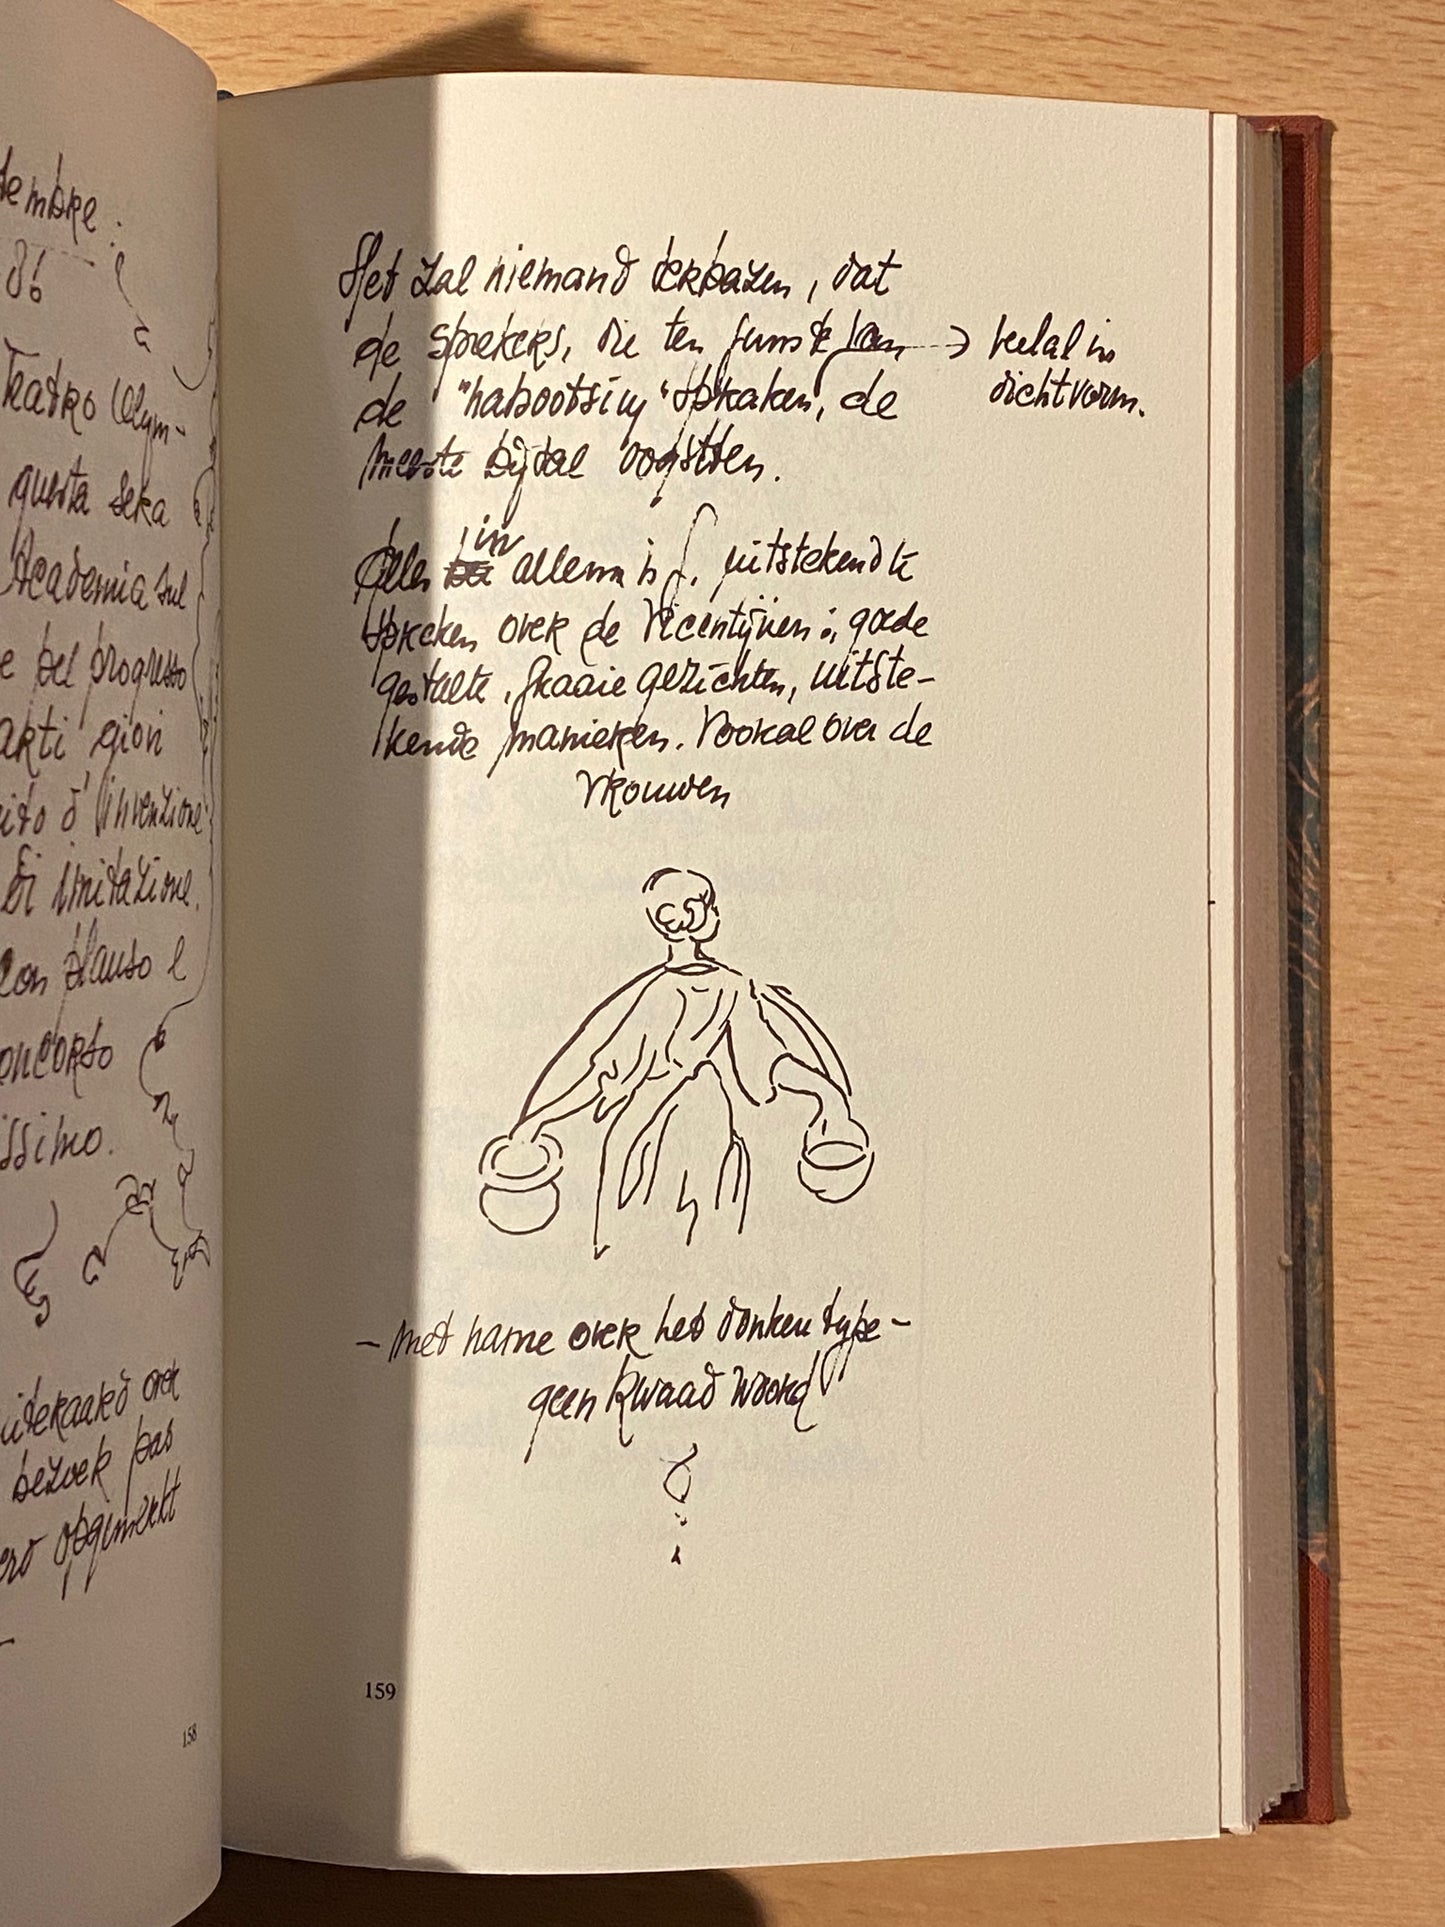 tembre :
86
Teatro Olym-
questa sera
Academia sul
e pel progresso
arti, giori
ito d'invenzione
di imitazione.
con plauso e
oncorso
issimo.
uiteraard over
bezoek pas
erd opgemerkt
158
Het zal niemand verbazen, dat
de sprekers, die ten gunste van → veelal in
dichtvorm.
de "nabootsing" spraken, de
meeste bijval oogstten.
Alles in allem is f. uitstekend te
spreken over de Vicentijnen: goede
gestalte, fraaie gezichten, uitste-
kende manieren. Vooral over de
vrouwen
- met name over het donkere type -
geen kwaad woord
159